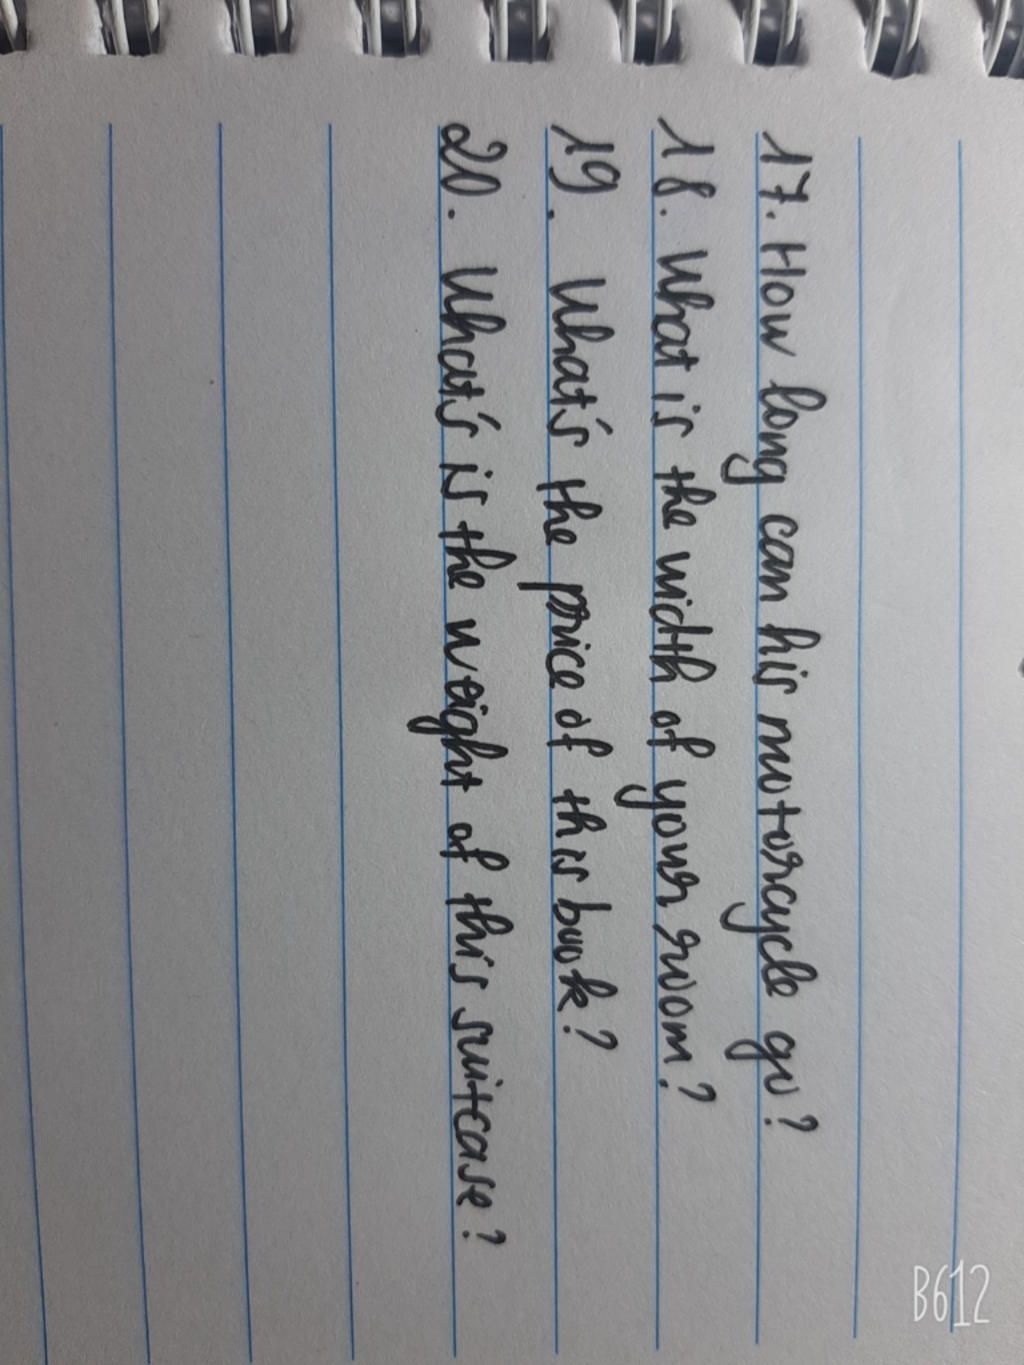 17. How long can his motorcycle go?
18. What is the width of your room?
19. What's the price of this book?
20. What's is the weight of this suitcase?
B612